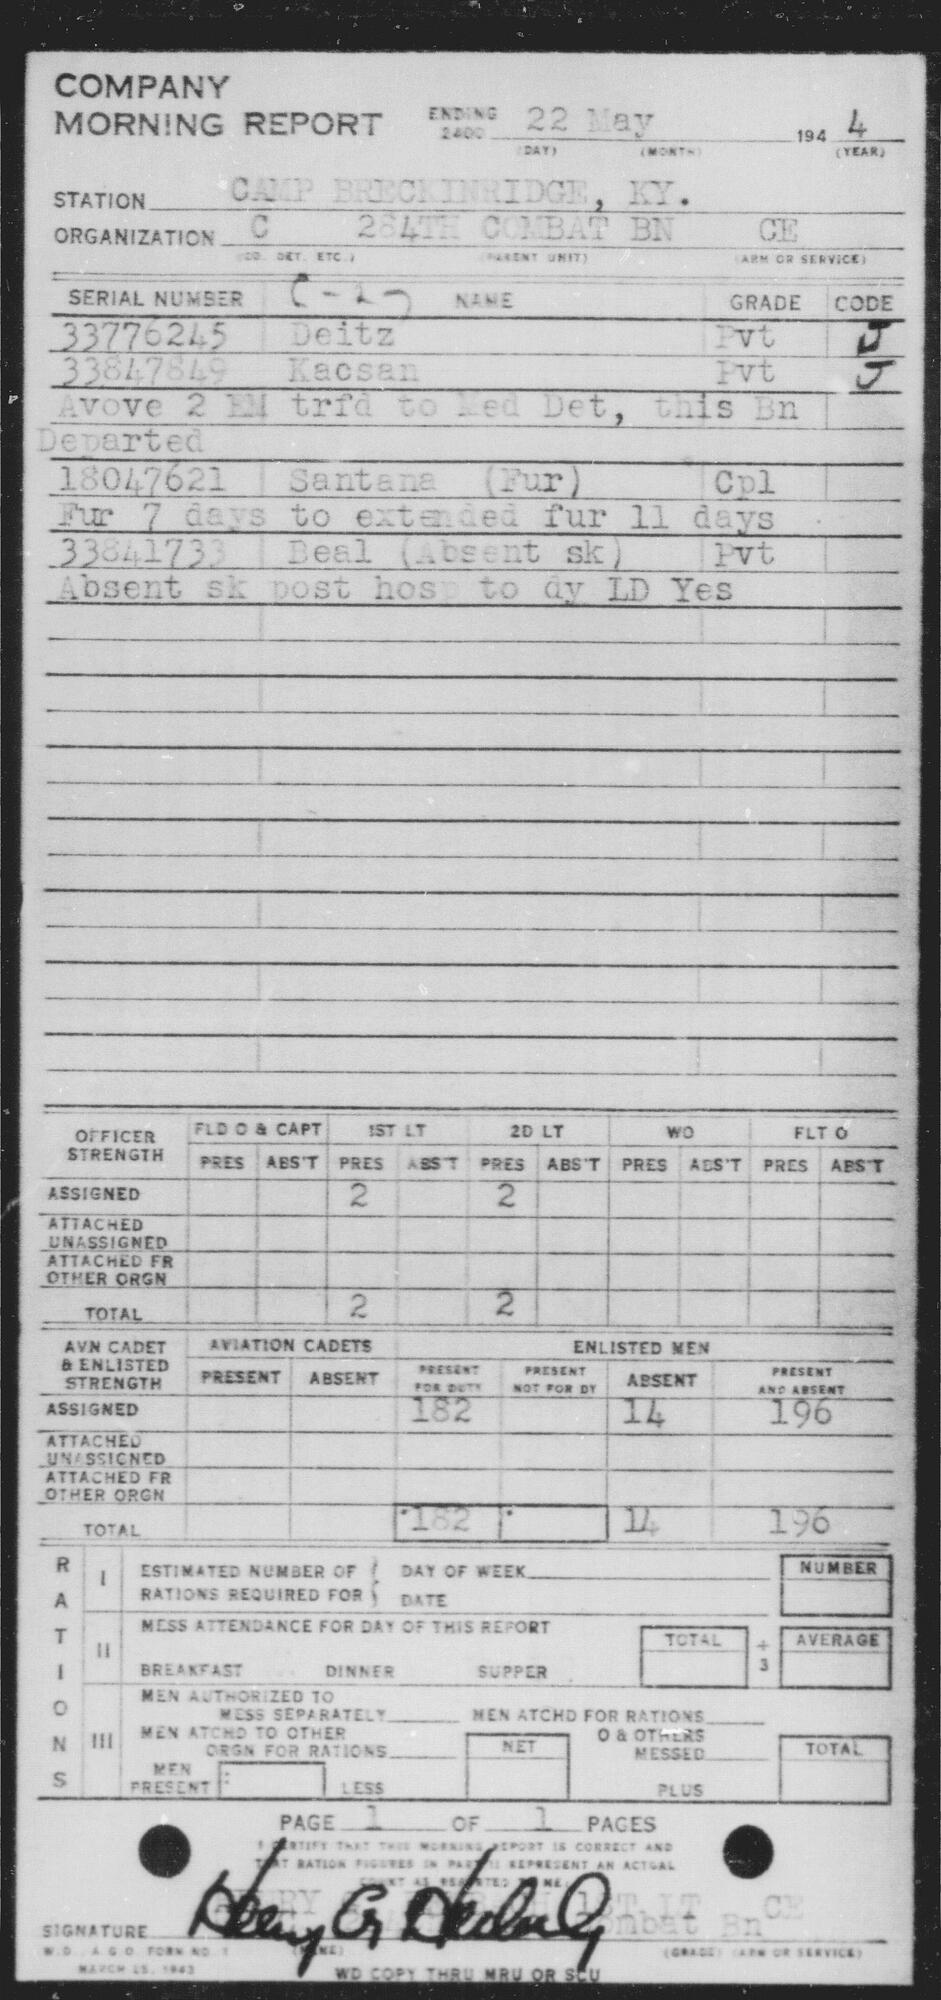 COMPANY
MORNING REPORT ENDING 2400 22 May 194 4
(DAY) (MONTH) (YEAR)
STATION CAMP BRECKINRIDGE, KY.
ORGANIZATION C 284TH COMBAT BN CE
(CO. DET. ETC.) (PARENT UNIT) (ARM OR SERVICE)
SERIAL NUMBER NAME GRADE CODE
33776245 Deitz Pvt J
33847849 Kacsan Pvt J
Avove 2 EM trfd to Med Det, this Bn
Departed
18047621 Santana (Fur) Cpl
Fur 7 days to extended fur 11 days
33841733 Beal (Absent sk) Pvt
Absent sk post hosp to dy LD Yes
OFFICER STRENGTH FLD O & CAPT 1ST LT 2D LT WO FLT O
PRES ABS'T PRES ABS'T PRES ABS'T PRES ABS'T PRES ABS'T
ASSIGNED 2 2
ATTACHED UNASSIGNED
ATTACHED FR OTHER ORGN
TOTAL 2 2
AVN CADET & ENLISTED STRENGTH AVIATION CADETS ENLISTED MEN
PRESENT ABSENT PRESENT FOR DUTY PRESENT NOT FOR DY ABSENT PRESENT AND ABSENT
ASSIGNED 182 14 196
ATTACHED UNASSIGNED
ATTACHED FR OTHER ORGN
TOTAL 182 14 196
RATIONS
I ESTIMATED NUMBER OF DAY OF WEEK NUMBER
RATIONS REQUIRED FOR DATE
II MESS ATTENDANCE FOR DAY OF THIS REPORT TOTAL ÷ 3 AVERAGE
BREAKFAST DINNER SUPPER
III MEN AUTHORIZED TO MESS SEPARATELY MEN ATCHD FOR RATIONS
MEN ATCHD TO OTHER ORGN FOR RATIONS NET O & OTHERS MESSED TOTAL
MEN PRESENT LESS PLUS
PAGE 1 OF 1 PAGES
I CERTIFY THAT THIS MORNING REPORT IS CORRECT AND
THAT RATION FIGURES IN PART II REPRESENT AN ACTUAL
COUNT AS REPORTED TO ME.
1ST LT CE
Combat Bn
SIGNATURE
W.D., A.G.O. FORM NO. 1 (NAME) (GRADE) (ARM OR SERVICE)
MARCH 15, 1943
WD COPY THRU MRU OR SCU